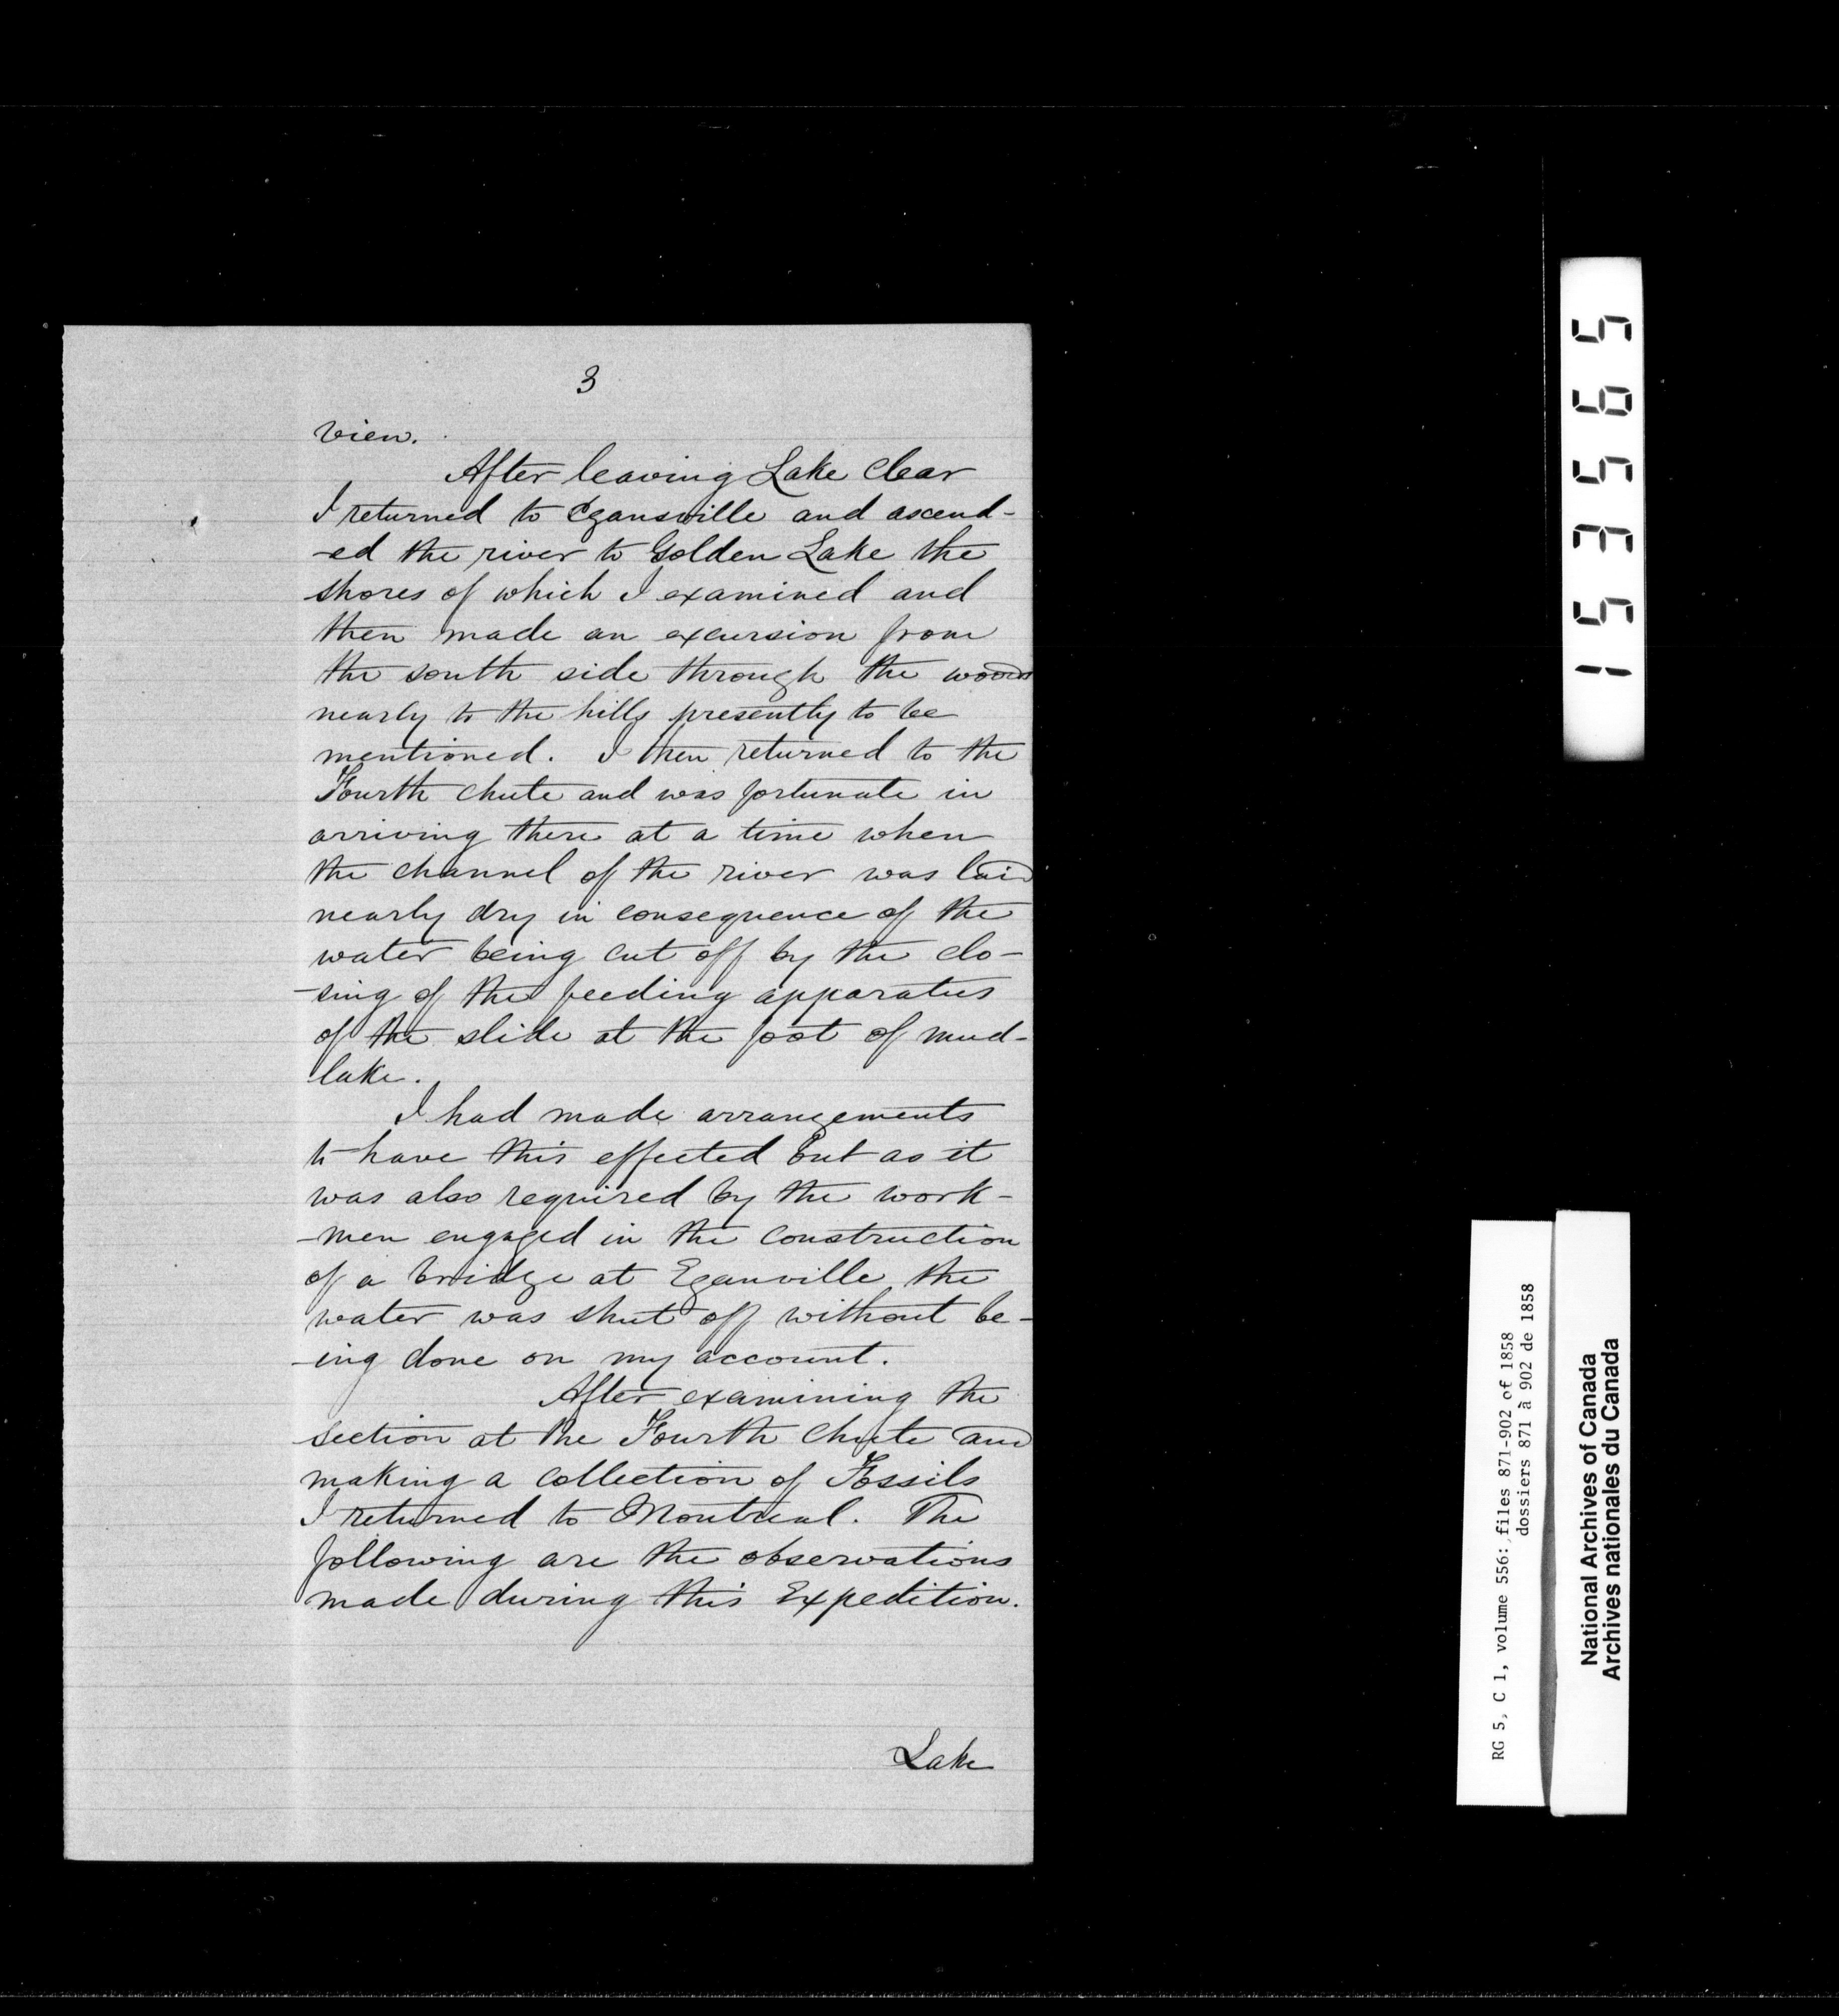 3
view.
After leaving Lake Clear
I returned to Egansville and ascend-
-ed the river to Golden Lake the
shores of which I examined and
then made an excursion from
the south side through the woods
nearly to the hills presently to be
mentioned. I then returned to the
Fourth Chute and was fortunate in
arriving there at a time when
the channel of the river was laid
nearly dry in consequence of the
water being cut off by the clo-
-sing of the feeding apparatus
of the slide at the foot of mud-
lake.
I had made arrangements
to have this effected but as it
was also required by the work-
-men engaged in the construction
of a bridge at Eganville the
water was shut off without be-
-ing done on my account.
After examining the
section at the Fourth Chute and
making a collection of Fossils
I returned to Montreal. The
following are the observations
made during this Expedition.
Lake
153565
RG 5, C 1, volume 556: files 871-902 of 1858
dossiers 871 à 902 de 1858
National Archives of Canada
Archives nationales du Canada